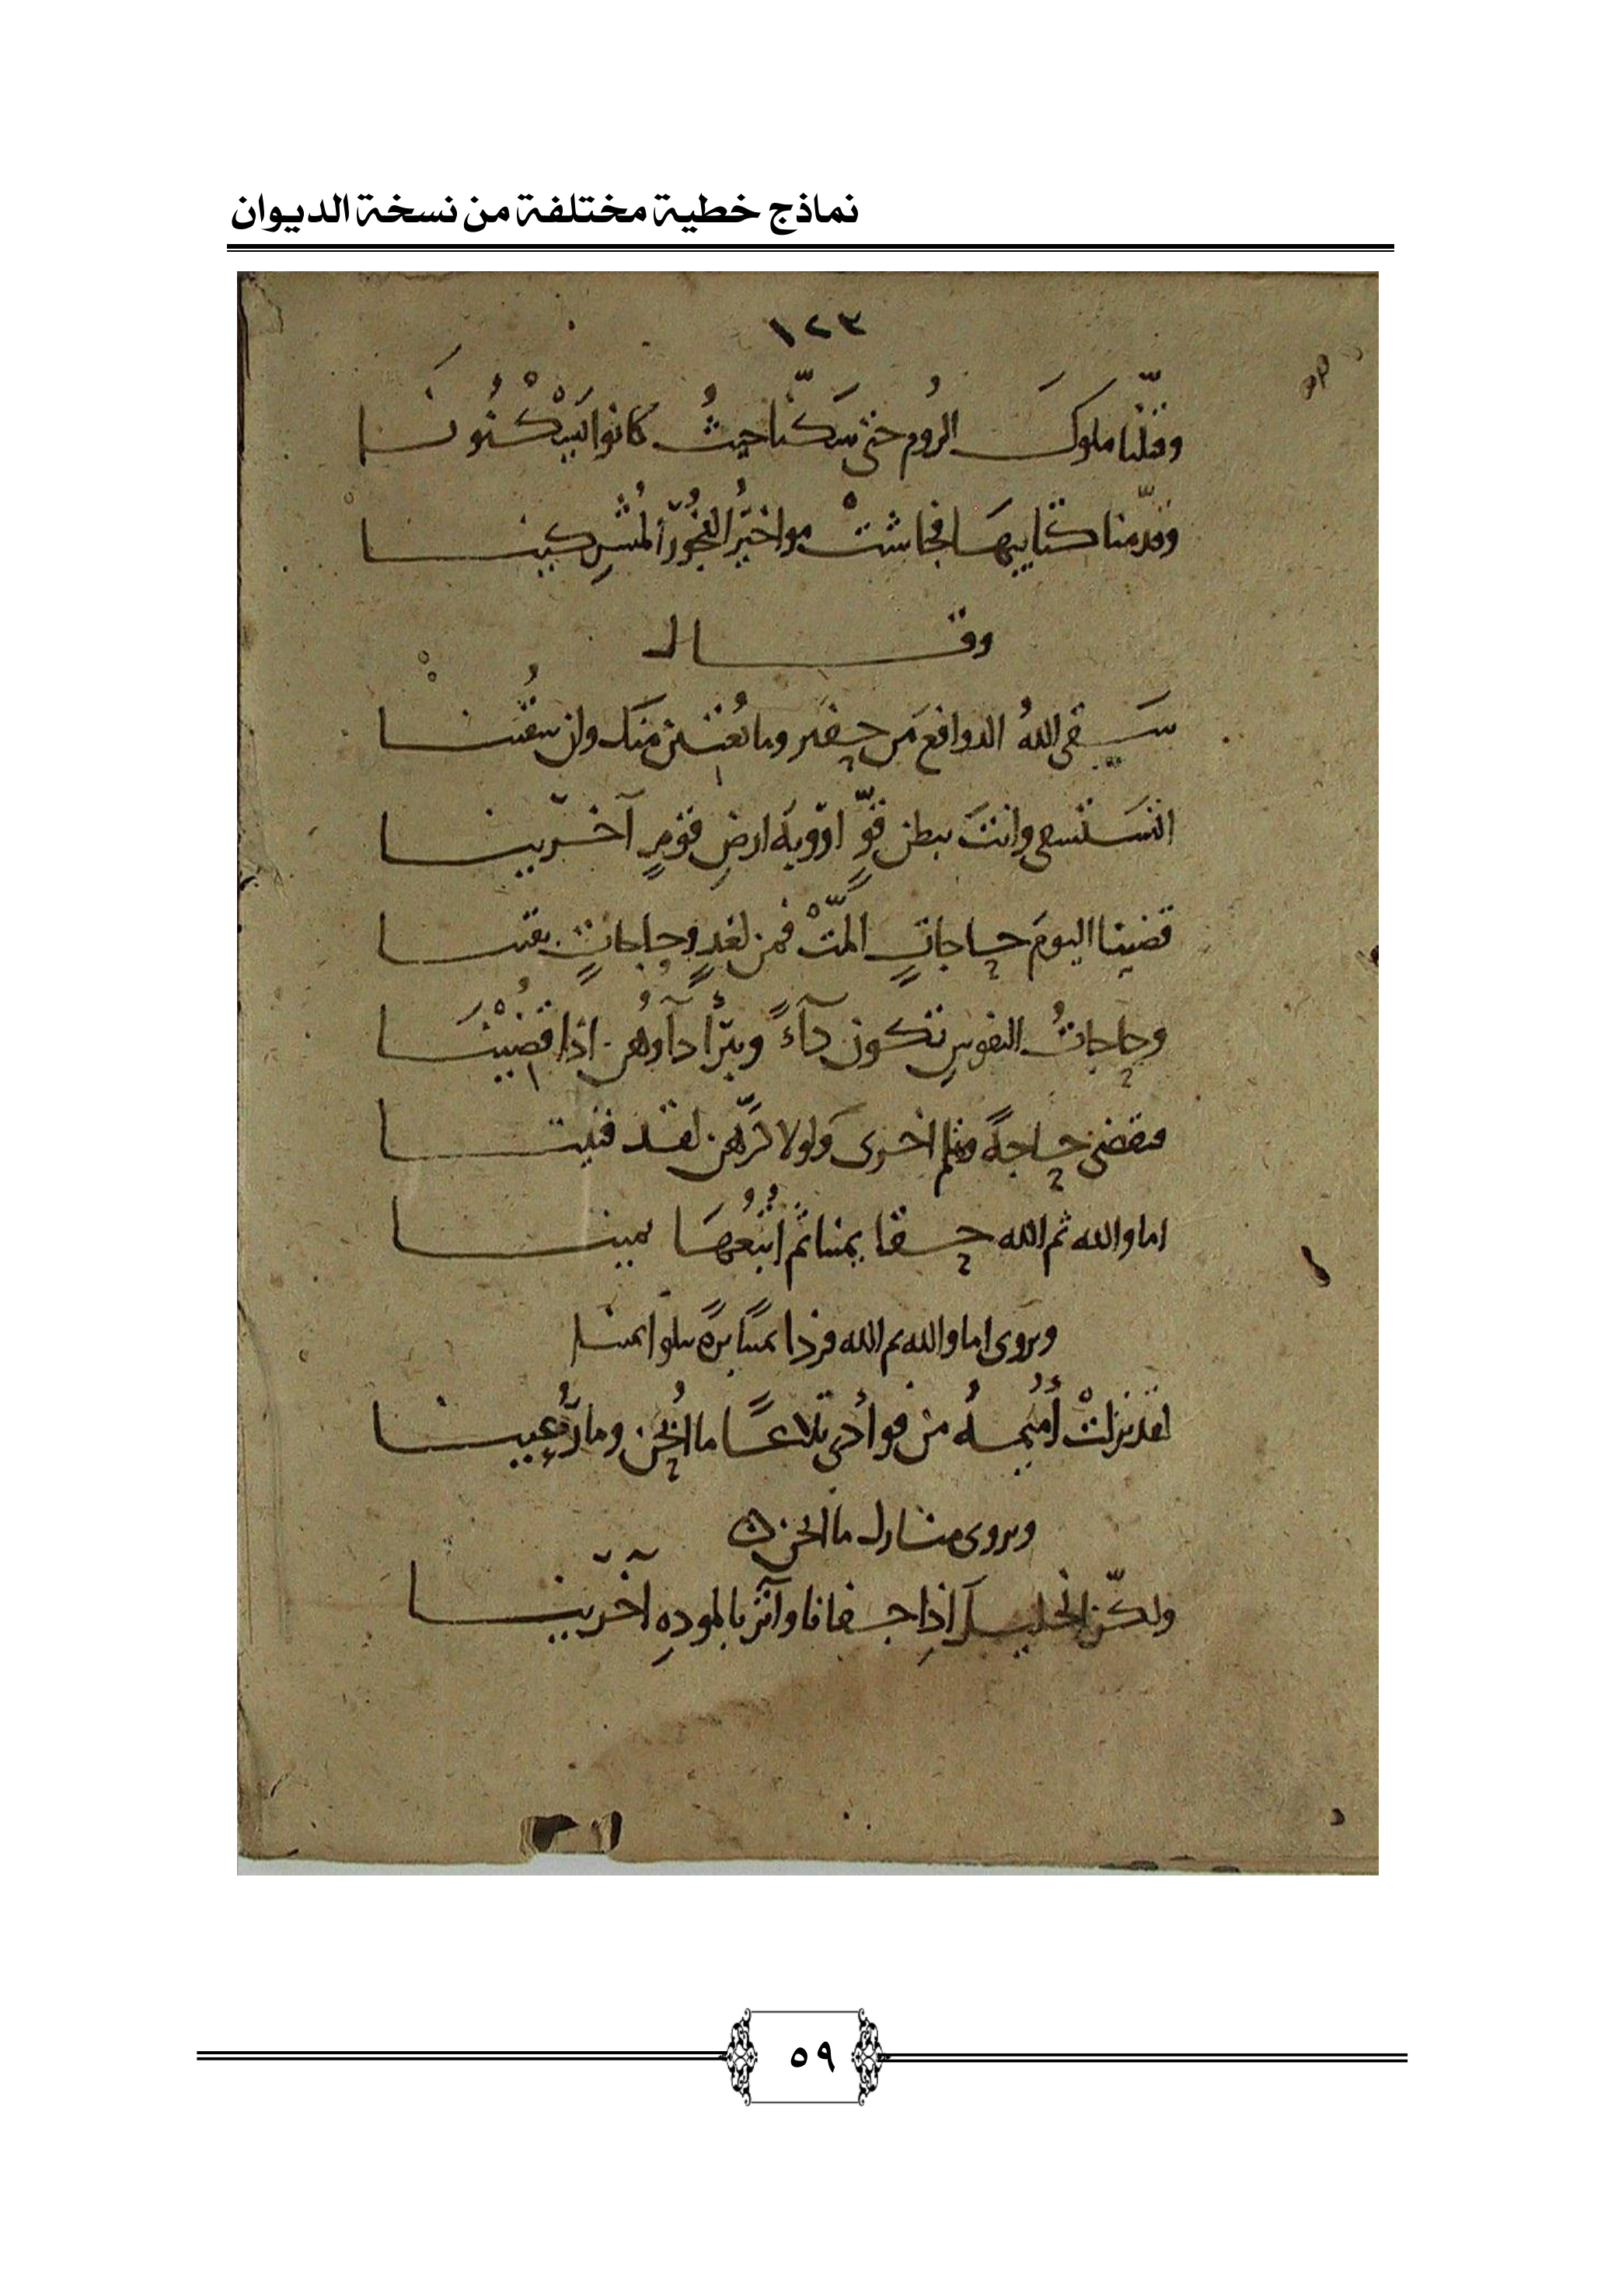 نماذج خطية مختلفة من نسخة الديوان
١٢٣
وقتّلنا ملوكَ الرُوم حتى سَكنّا حيثُ كانوا يَسْكُنُونَا
وقدّمنا كتايبهَا فجاشتْ مواخيرُ الفُجُورِ المُشرِكينا
وقـــال
سَقى اللهُ الدوافعَ مَن حفير وما يُغنين منك وإن سُقِينا
اتستسقى وانتَ ببطن قوٍّ اودّيةَ ارضِ قومٍ آخرّينا
قضينا اليومَ حاجاتٍ المّتْ فمن لغدٍ وحاجاتٍ بقينا
وحاجاتُ النفوسِ تكون دآءً وبُرْأ دآوُهن اذا قُضِيْنَا
فنقضى حاجةً وتلم اخرى وَلولا كرّهن لقد فنيتا
اما والله ثم الله حقا يمينا ثم اُتبُعهَا يمينا
ويروى اما والله ثم الله فردا يمينًا برةً تتلو ايمينا
لقد نزلتْ أُميمهُ من فوأدي تلاعًا ما اُبِحْن وما رُعِينا
ويروى منازل ما ابحن ه
ولكنّ الخليلَ اذا جفانا وآثر بالمودهِ آخرّينا
٥٩